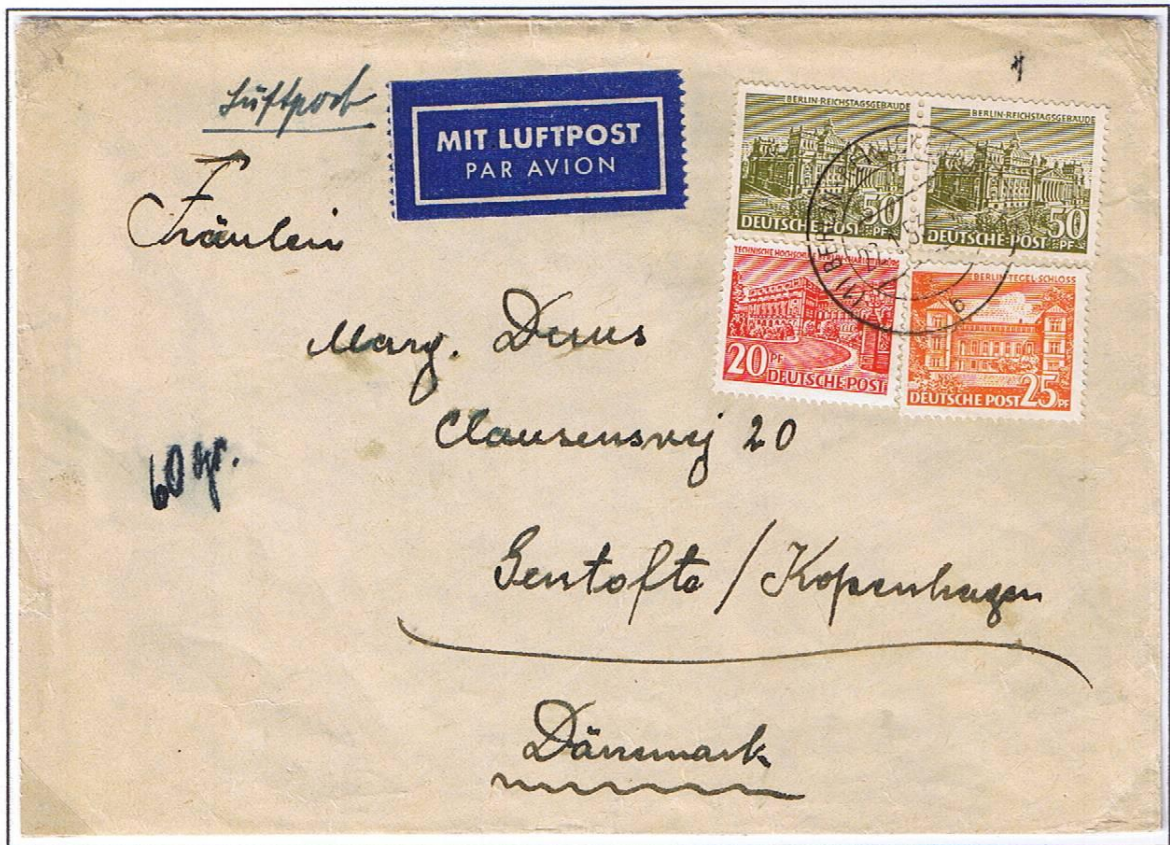 Luftpost
MIT LUFTPOST
PAR AVION
BERLIN-REICHSTAGSGEBÄUDE
50 PF
DEUTSCHE POST
BERLIN-REICHSTAGSGEBÄUDE
50 PF
DEUTSCHE POST
TECHNISCHE HOCHSCHULE
20 PF
DEUTSCHE POST
BERLIN-TEGEL-SCHLOSS
DEUTSCHE POST 25 PF
(1) BERLIN
b
Fräulein
Marg.
Clausensvej 20
60 gr.
Gentofte / Kopenhagen
Dänemark